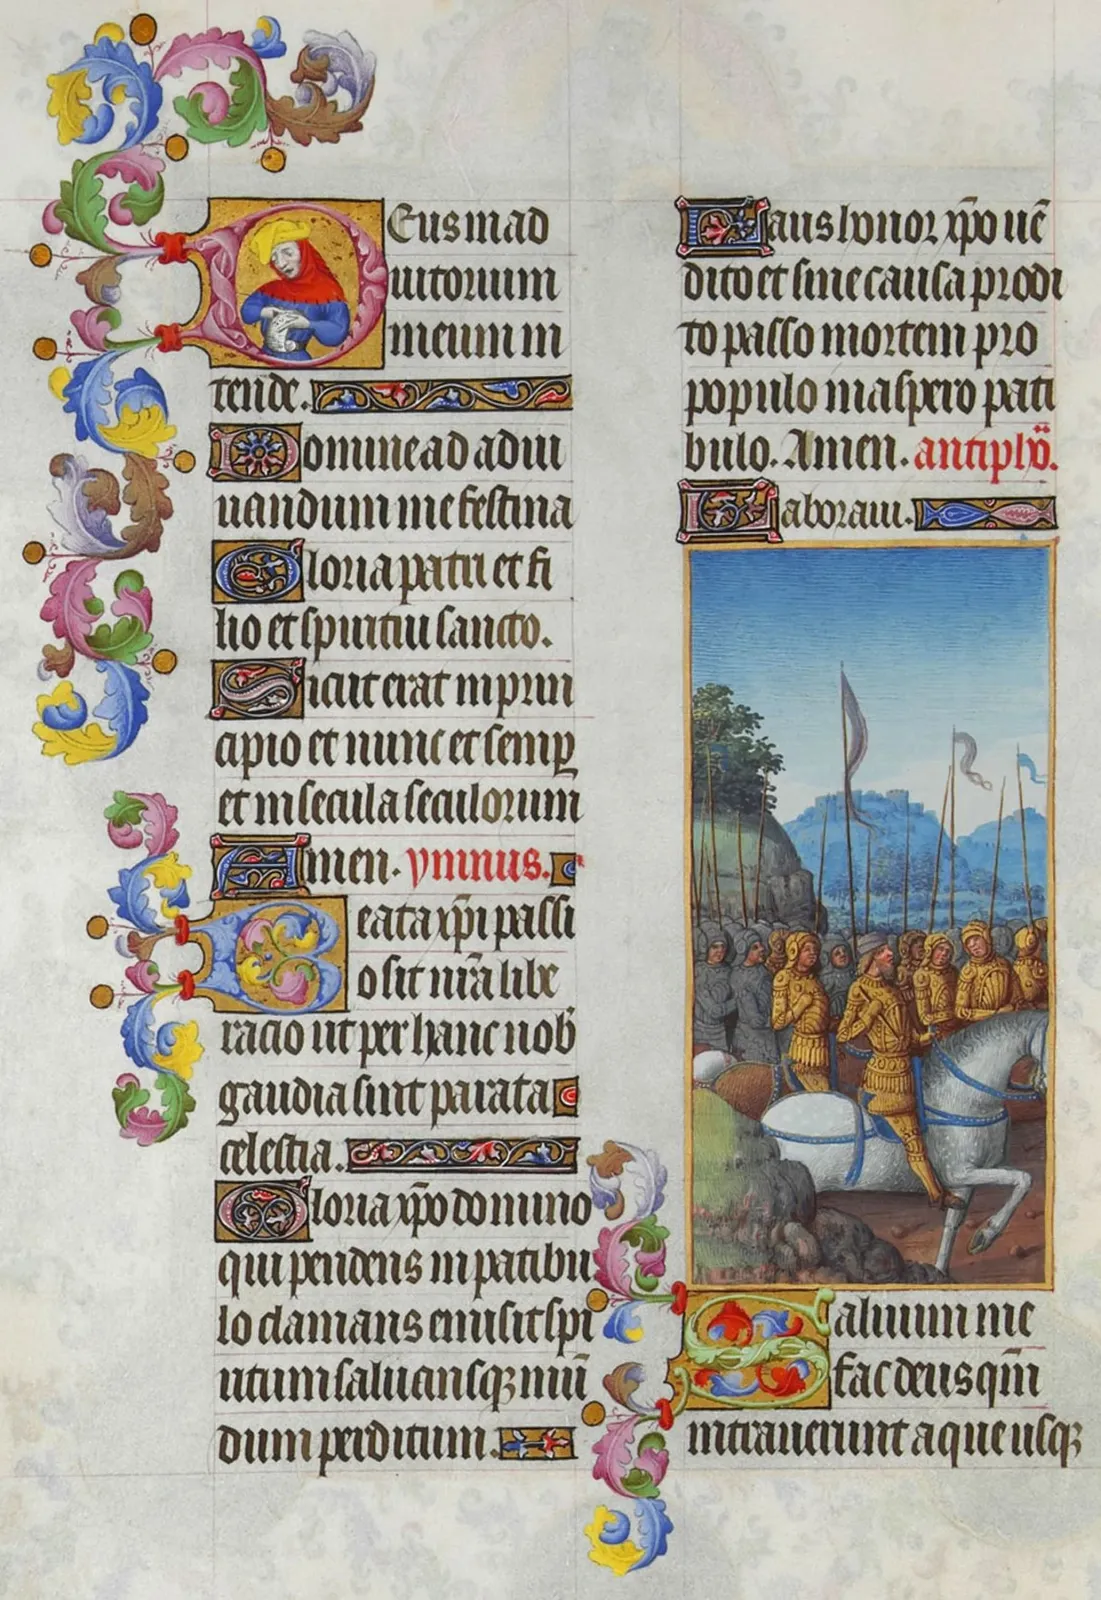 Deus in ad
iutorium
meum in
tende.
Domine ad adiu
uandum me festina
Gloria patri et fi
lio et spiritui sancto.
Sicut erat in prin
cipio et nunc et semp̱
et in secula seculorum
Amen. ymnus.
Beata xp̄i passi
o sit nr̄a libe
racio ut per hanc nob̄
gaudia sint parata
celestia.
Gloria xp̄o domino
qui pendens in patibu
lo clamans emisit spi
ritum saluansqꝫ mū
dum perditum.
Laus honor xp̄o uē
dito et sine causa prodi
to passo mortem pro
populo in aspero pati
bulo. Amen. antiph̄.
Laboraui.
Saluum me
fac deus qm̄
intrauerunt aque usqꝫ